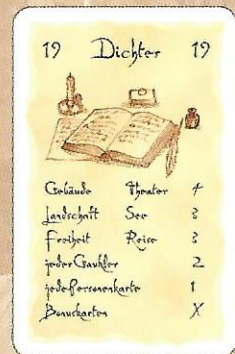 19 Dichter 19
Gebäude Theater 4
Landschaft See 3
Freiheit Reise 3
jeder Gaukler 2
jede Personenkarte 1
Bonuskarten X